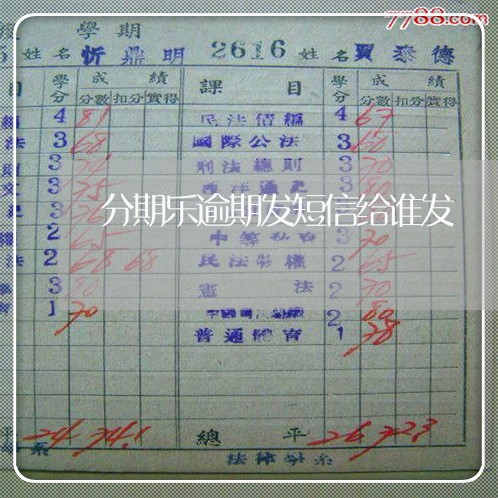 7788.com
學期
姓名 忻鼎明 2616 姓名 賈泰德
目 學分 成績 課目 學分 成績
分數 扣分 實得 分數 扣分 實得
4 81 民法債編 4 67
法 3 68 國際公法 3 60
3 刑法總則 3 70
3 75 3 80
3 76 3
分期乐逾期发短信给谁发
2 65 3 70
法 2 68 68 民法物權 2 65
3 80 憲法 2 70
1 70 2 80
普通體育 1 78
平 24 74.1 總平 26 72.3
系 法律學系